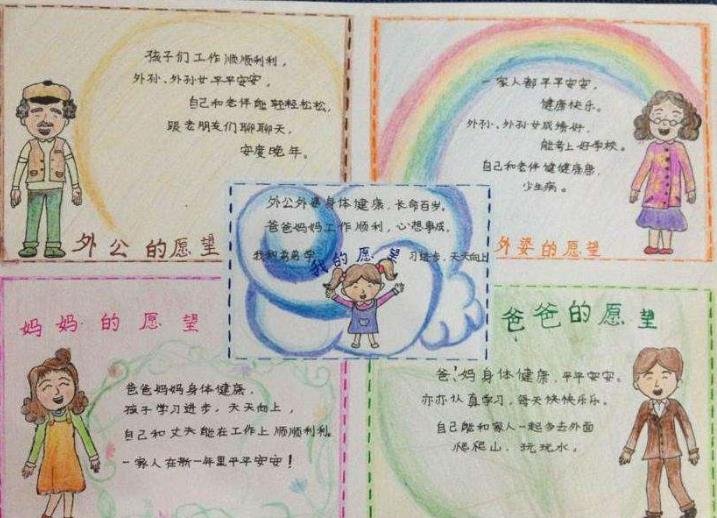 孩子们工作顺顺利利，
外孙、外孙女平平安安，
自己和老伴能轻轻松松，
跟老朋友们聊聊天，
安度晚年。
外公的愿望
一家人都平平安安，
健康快乐。
外孙、外孙女成绩好，
能考上好学校。
自己和老伴健健康康，
少生病。
外婆的愿望
外公外婆身体健康，长命百岁。
爸爸妈妈工作顺利，心想事成。
我和弟弟学习进步，天天向上
我的愿望
妈妈的愿望
爸爸妈妈身体健康，
孩子学习进步，天天向上，
自己和丈夫能在工作上顺顺利利。
一家人在新一年里平平安安！
爸爸的愿望
爸、妈身体健康，平平安安。
亦亦认真学习，每天快快乐乐。
自己能和家人一起多去外面
爬爬山、玩玩水。